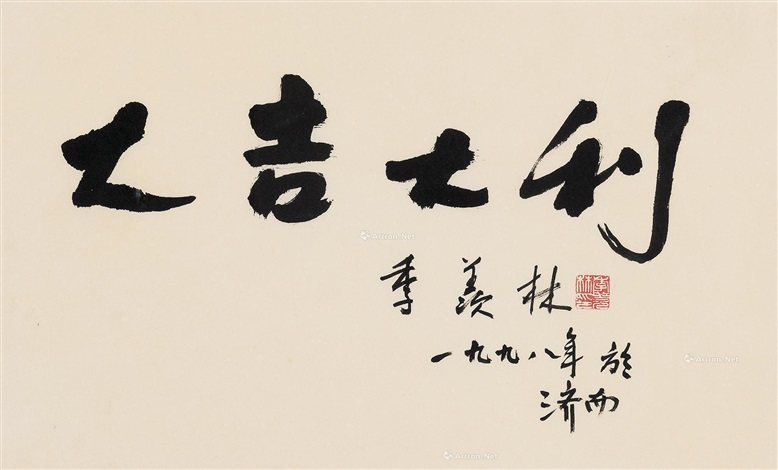 大吉大利
季羡林
一九九八年 於
济南
Artron.Net
Artron.Net
Artron.Net
Artron.Net